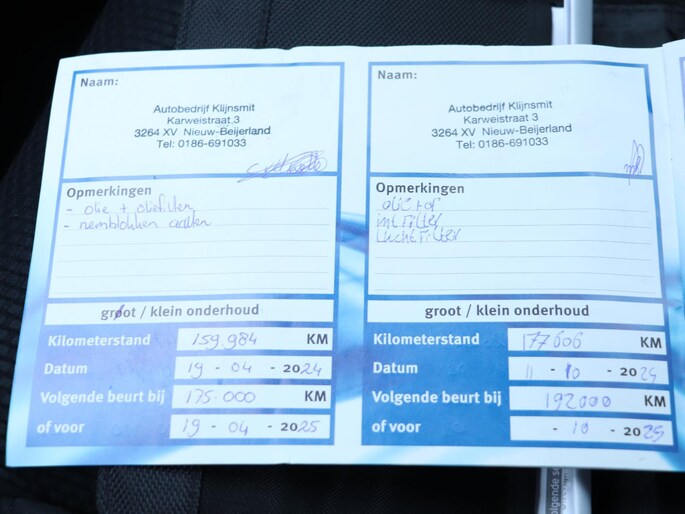 Naam:
Autobedrijf Klijnsmit
Karweistraat 3
3264 XV Nieuw-Beijerland
Tel: 0186-691033
Opmerkingen
- olie + oliefilter
- remblokken
groot / klein onderhoud
Kilometerstand 159.984 KM
Datum 19 - 04 - 2024
Volgende beurt bij 175.000 KM
of voor 19 - 04 - 2025
Naam:
Autobedrijf Klijnsmit
Karweistraat 3
3264 XV Nieuw-Beijerland
Tel: 0186-691033
Opmerkingen
olie + of
int Filter
Lucht Filter
groot / klein onderhoud
Kilometerstand 177606 KM
Datum 11 - 10 - 2024
Volgende beurt bij 192000 KM
of voor - 10 - 2025